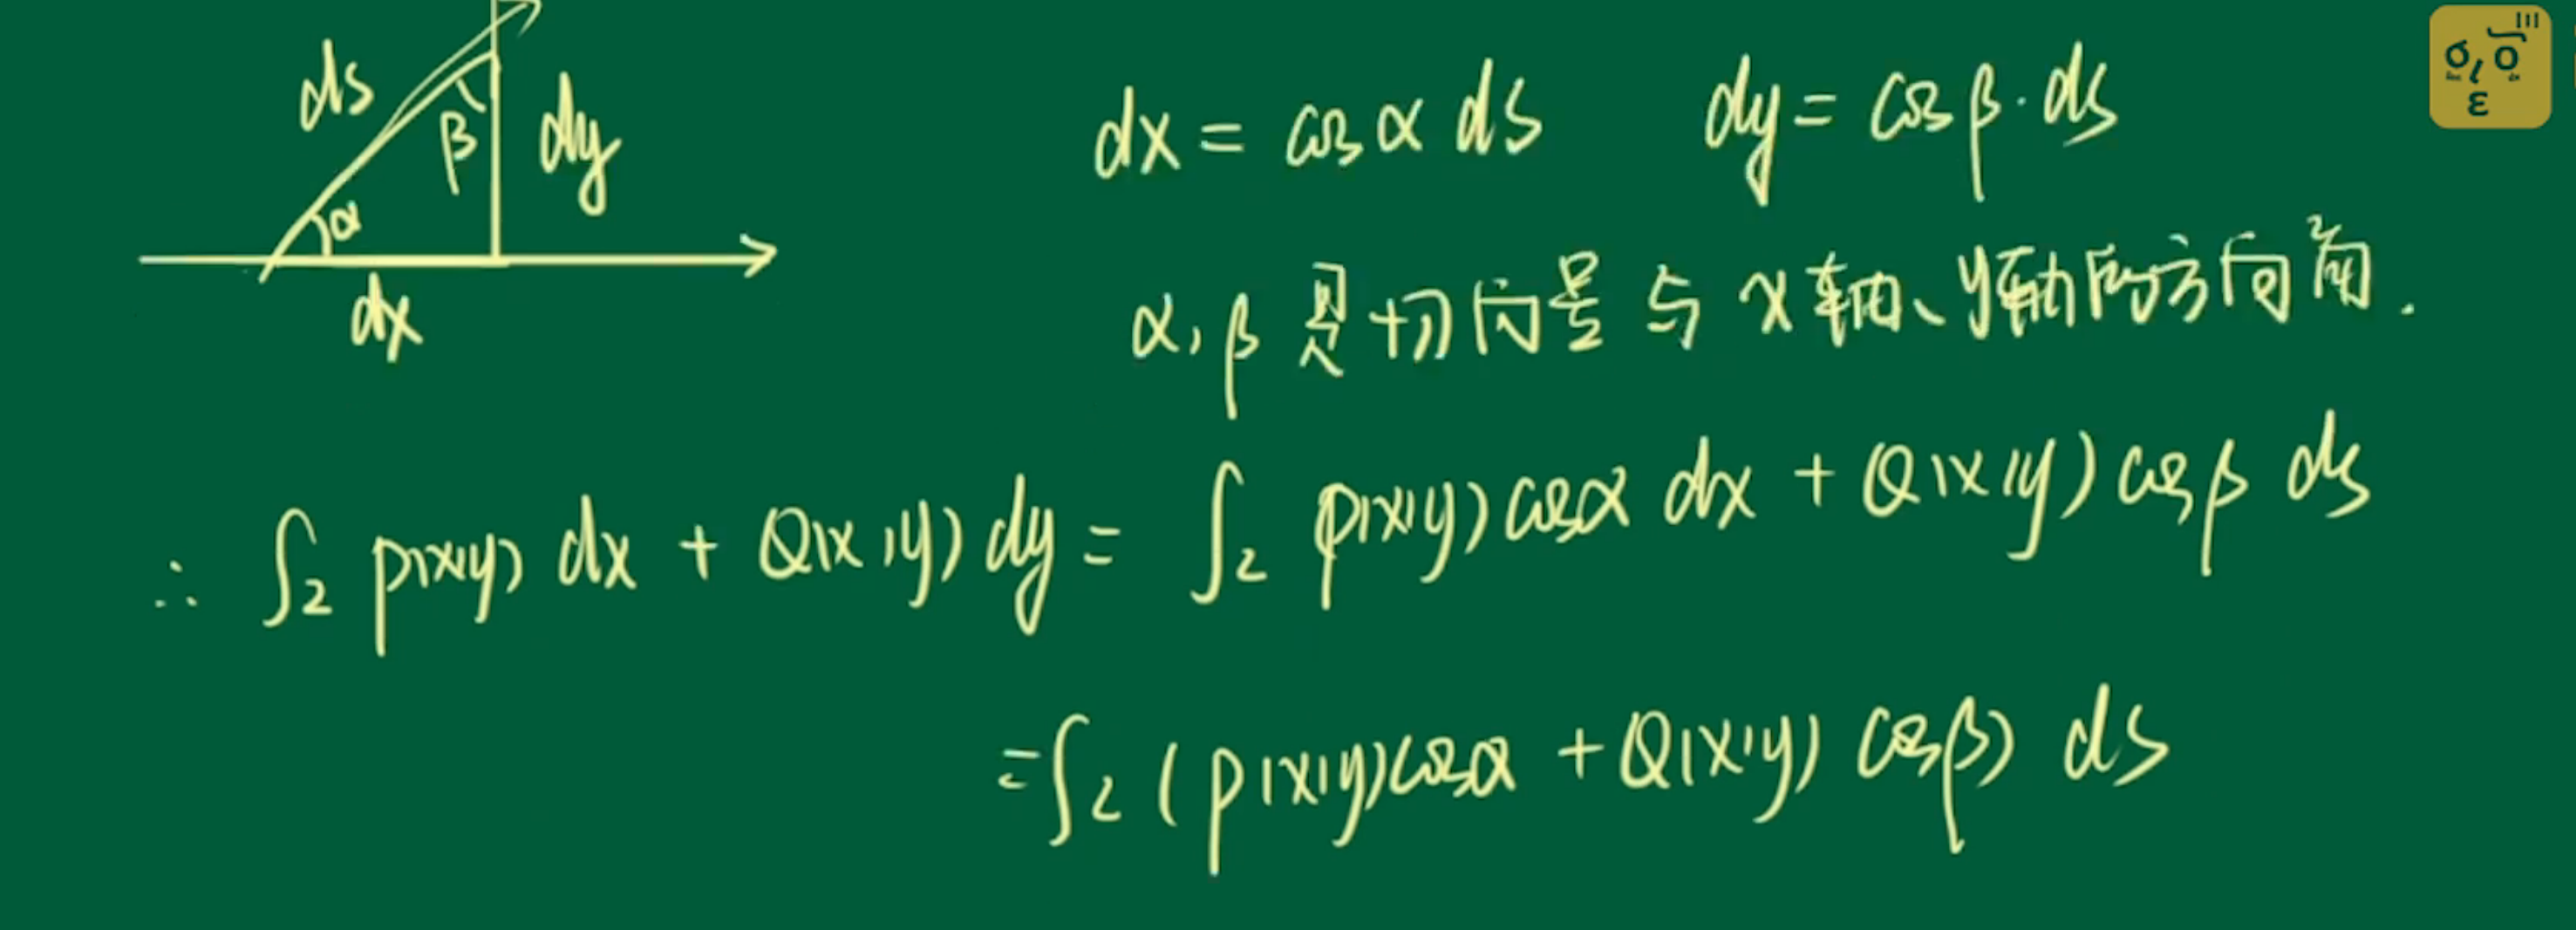 ds β dy
α
dx
dx = cosα ds dy = cosβ·ds
α, β 是切向量与x轴、y轴的方向角.
∴ ∫L P(x,y) dx + Q(x,y) dy = ∫L P(x,y) cosα dx + Q(x,y) cosβ ds
= ∫L (P(x,y) cosα + Q(x,y) cosβ) ds